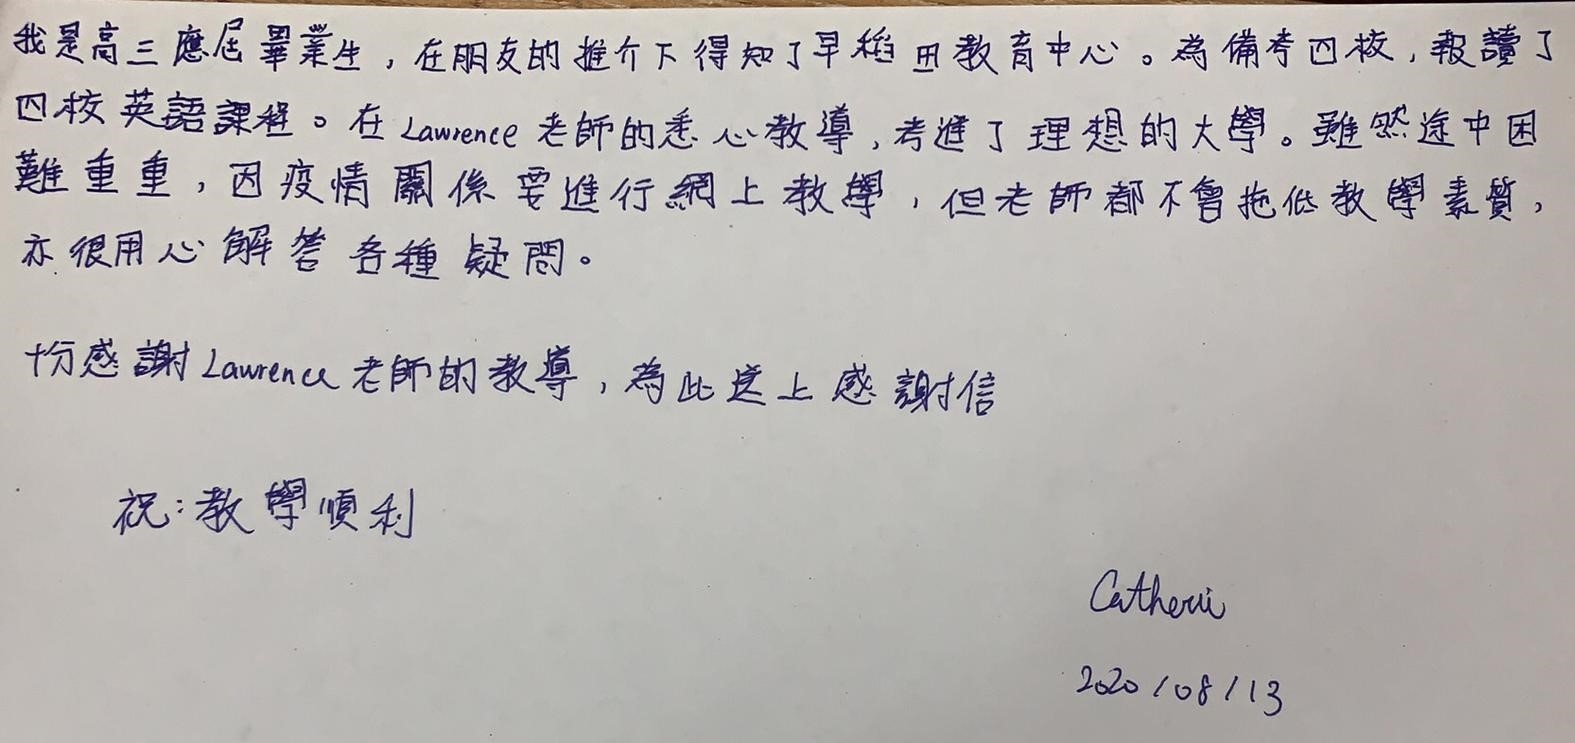 我是高三應屆畢業生，在朋友的推介下得知了早稻田教育中心。為備考四校，報讀了
四校英語課程。在Lawrence老師的悉心教導，考進了理想的大學。雖然途中困
難重重，因疫情關係要進行網上教學，但老師都不會拖低教學素質，
亦很用心解答各種疑問。
十份感謝Lawrence老師的教導，為此送上感謝信
祝：教學順利
Catheri
2020/08/13